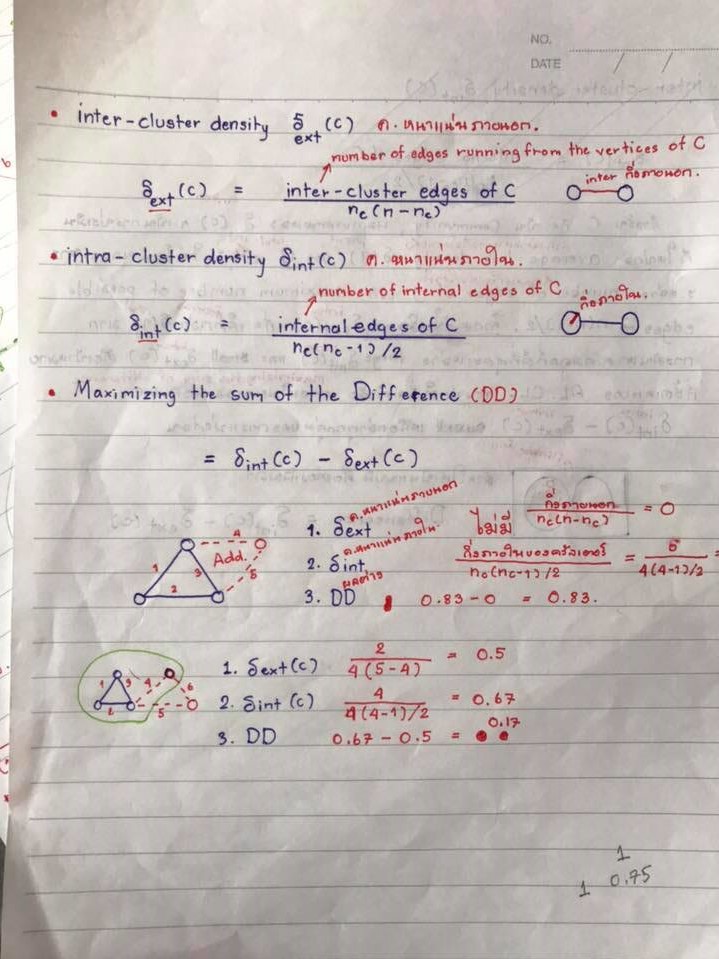 NO.
DATE / /
• inter-cluster density δext (c) ค. หนาแน่นภายนอก.
number of edges running from the vertices of C
δext(c) = inter-cluster edges of C / nc(n-nc)
inter กิ่งภายนอก.
• intra-cluster density δint(c) ค. หนาแน่นภายใน.
number of internal edges of C
กิ่งภายใน.
δint(c) = internal edges of C / nc(nc-1)/2
• Maximizing the sum of the Difference (DD)
= δint(c) - δext(c)
ค.หนาแน่นภายนอก
1. δext ไม่มี กิ่งภายนอก / nc(n-nc) = 0
ค.หนาแน่นภายใน
2. δint กิ่งภายในของคลัสเตอร์ / nc(nc-1)/2 = 5 / 4(4-1)/2 =
ผลต่าง
3. DD 0.83-0 = 0.83.
1 2 3 4 5 Add.
1. δext(c) 2 / 4(5-4) = 0.5
2. δint(c) 4 / 4(4-1)/2 = 0.67
3. DD 0.67-0.5 = 0.17
1 2 3 4 5 6
1
1 0.75